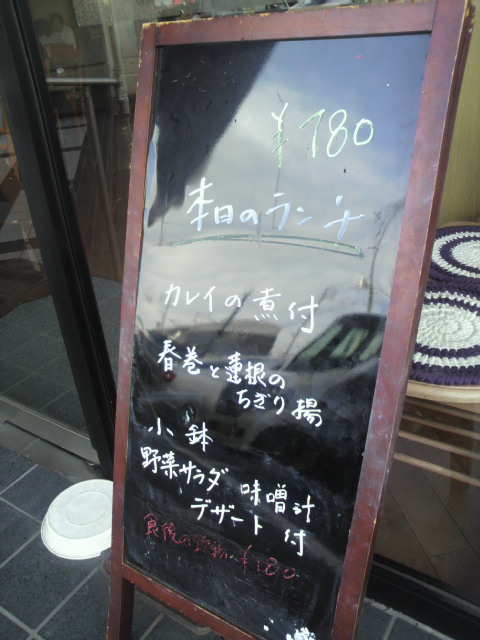 ¥780
本日のランチ
カレイの煮付
春巻と蓮根の
ちぎり揚
小鉢
野菜サラダ 味噌汁
デザート付
食後の飲物 ¥180